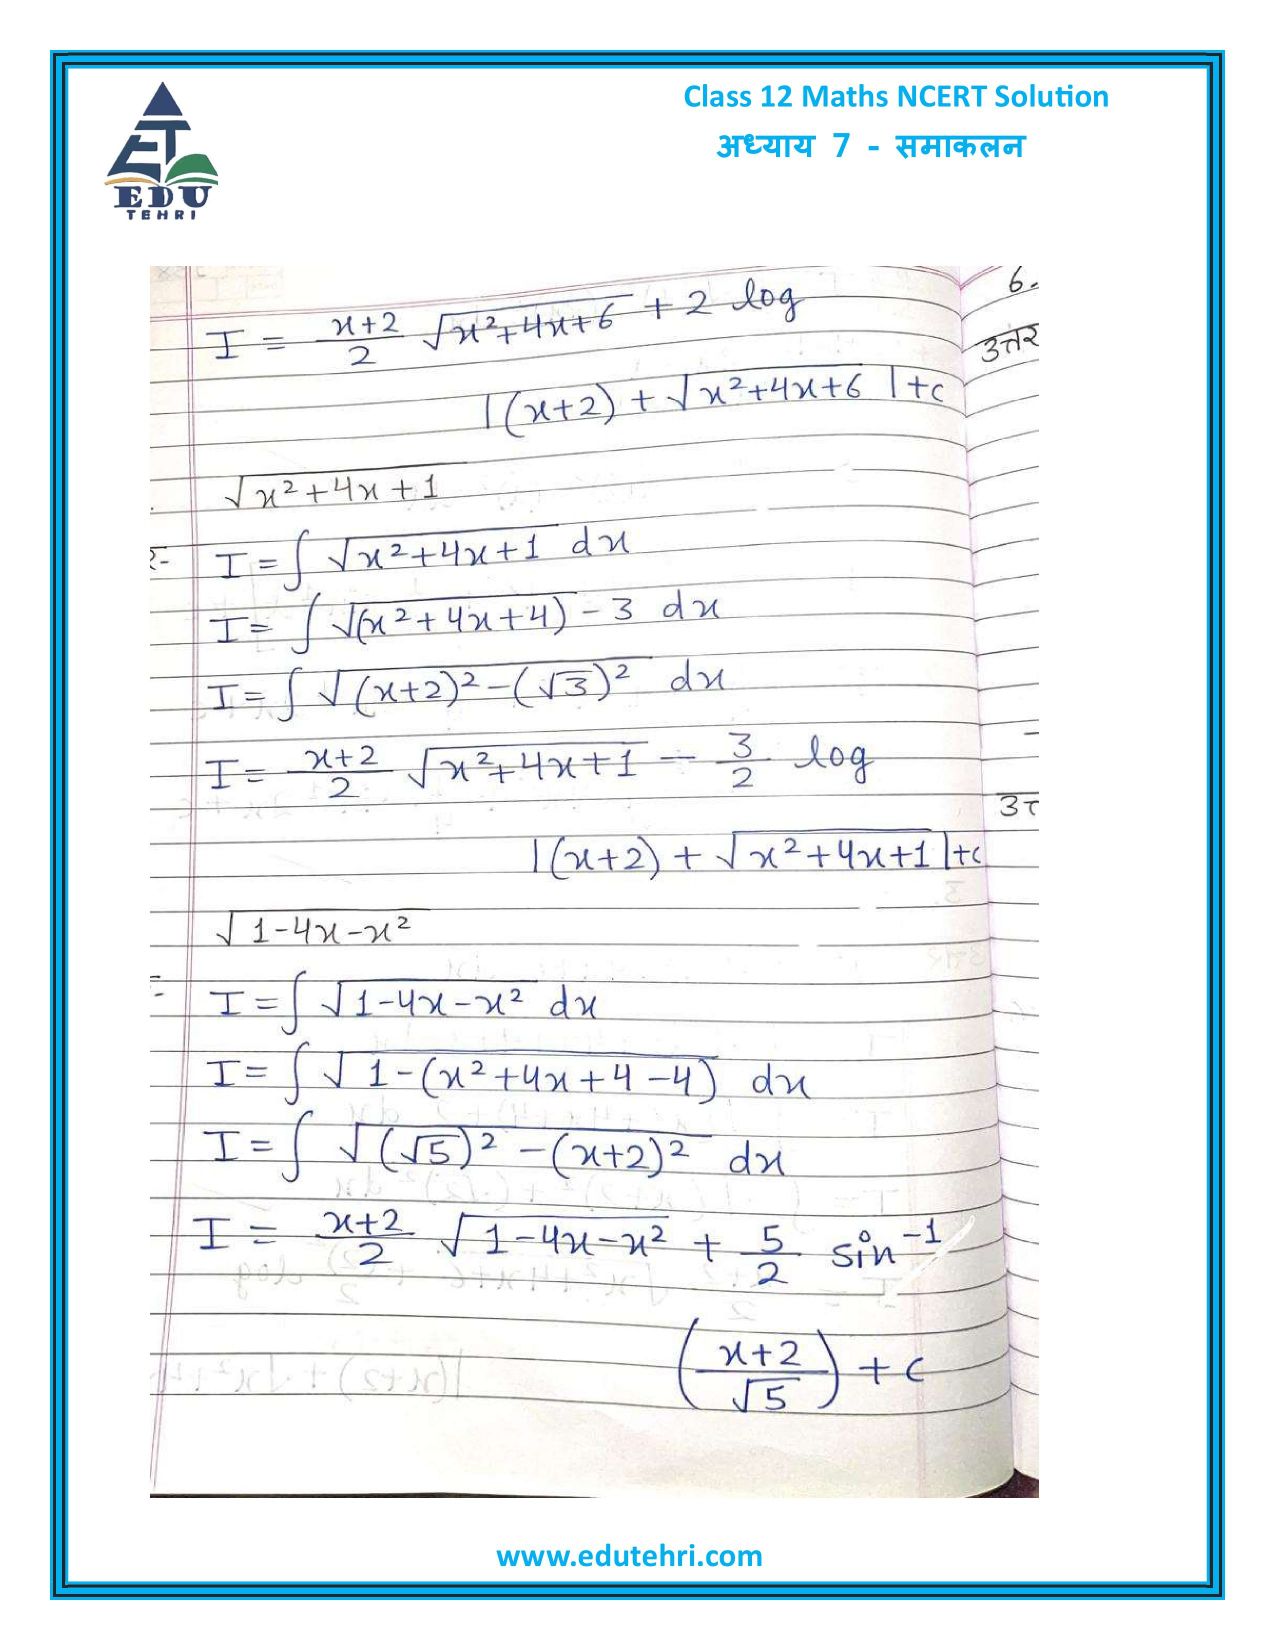 EDU
TEHRI
Class 12 Maths NCERT Solution
अध्याय 7 - समाकलन
I = x+2/2 √(x²+4x+6) + 2 log
|(x+2) + √(x²+4x+6)| + c
√(x²+4x+1)
I = ∫ √(x²+4x+1) dx
I = ∫ √(x²+4x+4) - 3 dx
I = ∫ √((x+2)² - (√3)²) dx
I = x+2/2 √(x²+4x+1) - 3/2 log
|(x+2) + √(x²+4x+1)| + c
√(1-4x-x²)
I = ∫ √(1-4x-x²) dx
I = ∫ √(1-(x²+4x+4-4)) dx
I = ∫ √((√5)² - (x+2)²) dx
I = x+2/2 √(1-4x-x²) + 5/2 sin⁻¹
(x+2/√5) + c
6.
उत्तर
www.edutehri.com